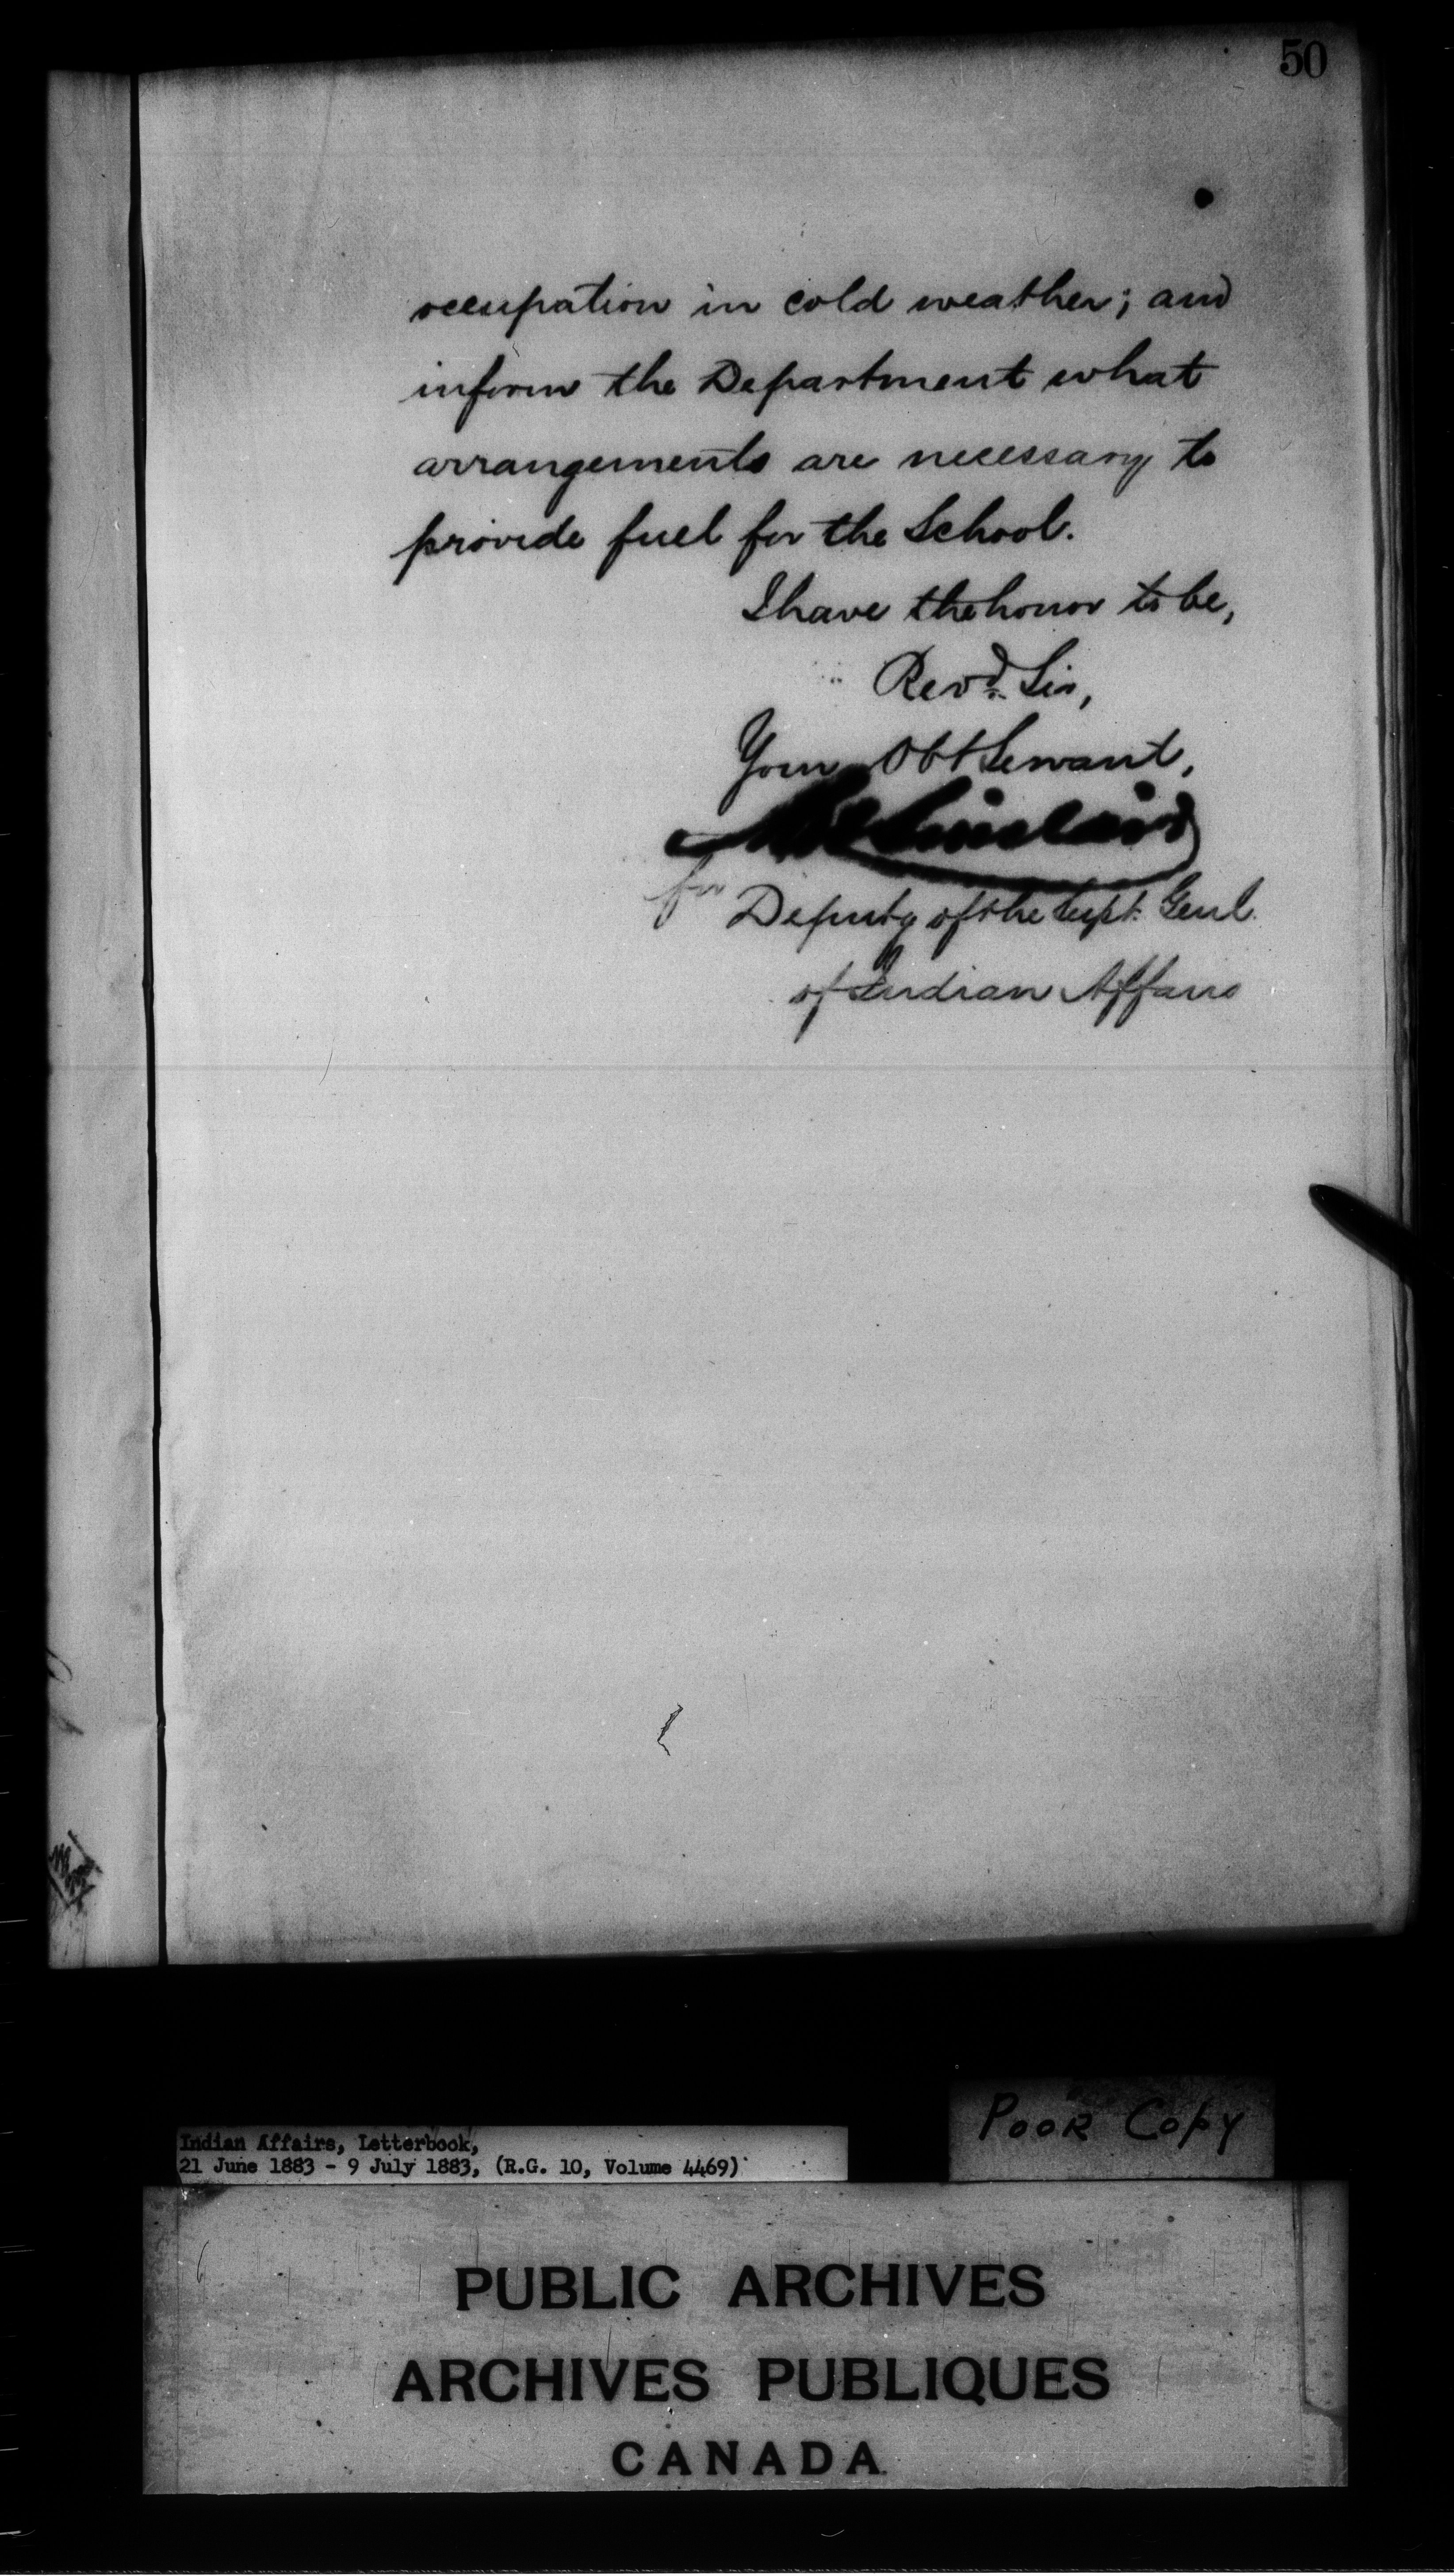 50
occupation in cold weather; and
inform the Department what
arrangements are necessary to
provide fuel for the School.
I have the honor to be,
Revd. Sir,
Your Obt Servant,
Sinclair
for
Deputy of the Supt. Genl.
of Indian Affairs
Poor Copy
Indian Affairs, Letterbook,
21 June 1883 - 9 July 1883, (R.G. 10, Volume 4469)
PUBLIC ARCHIVES
ARCHIVES PUBLIQUES
CANADA